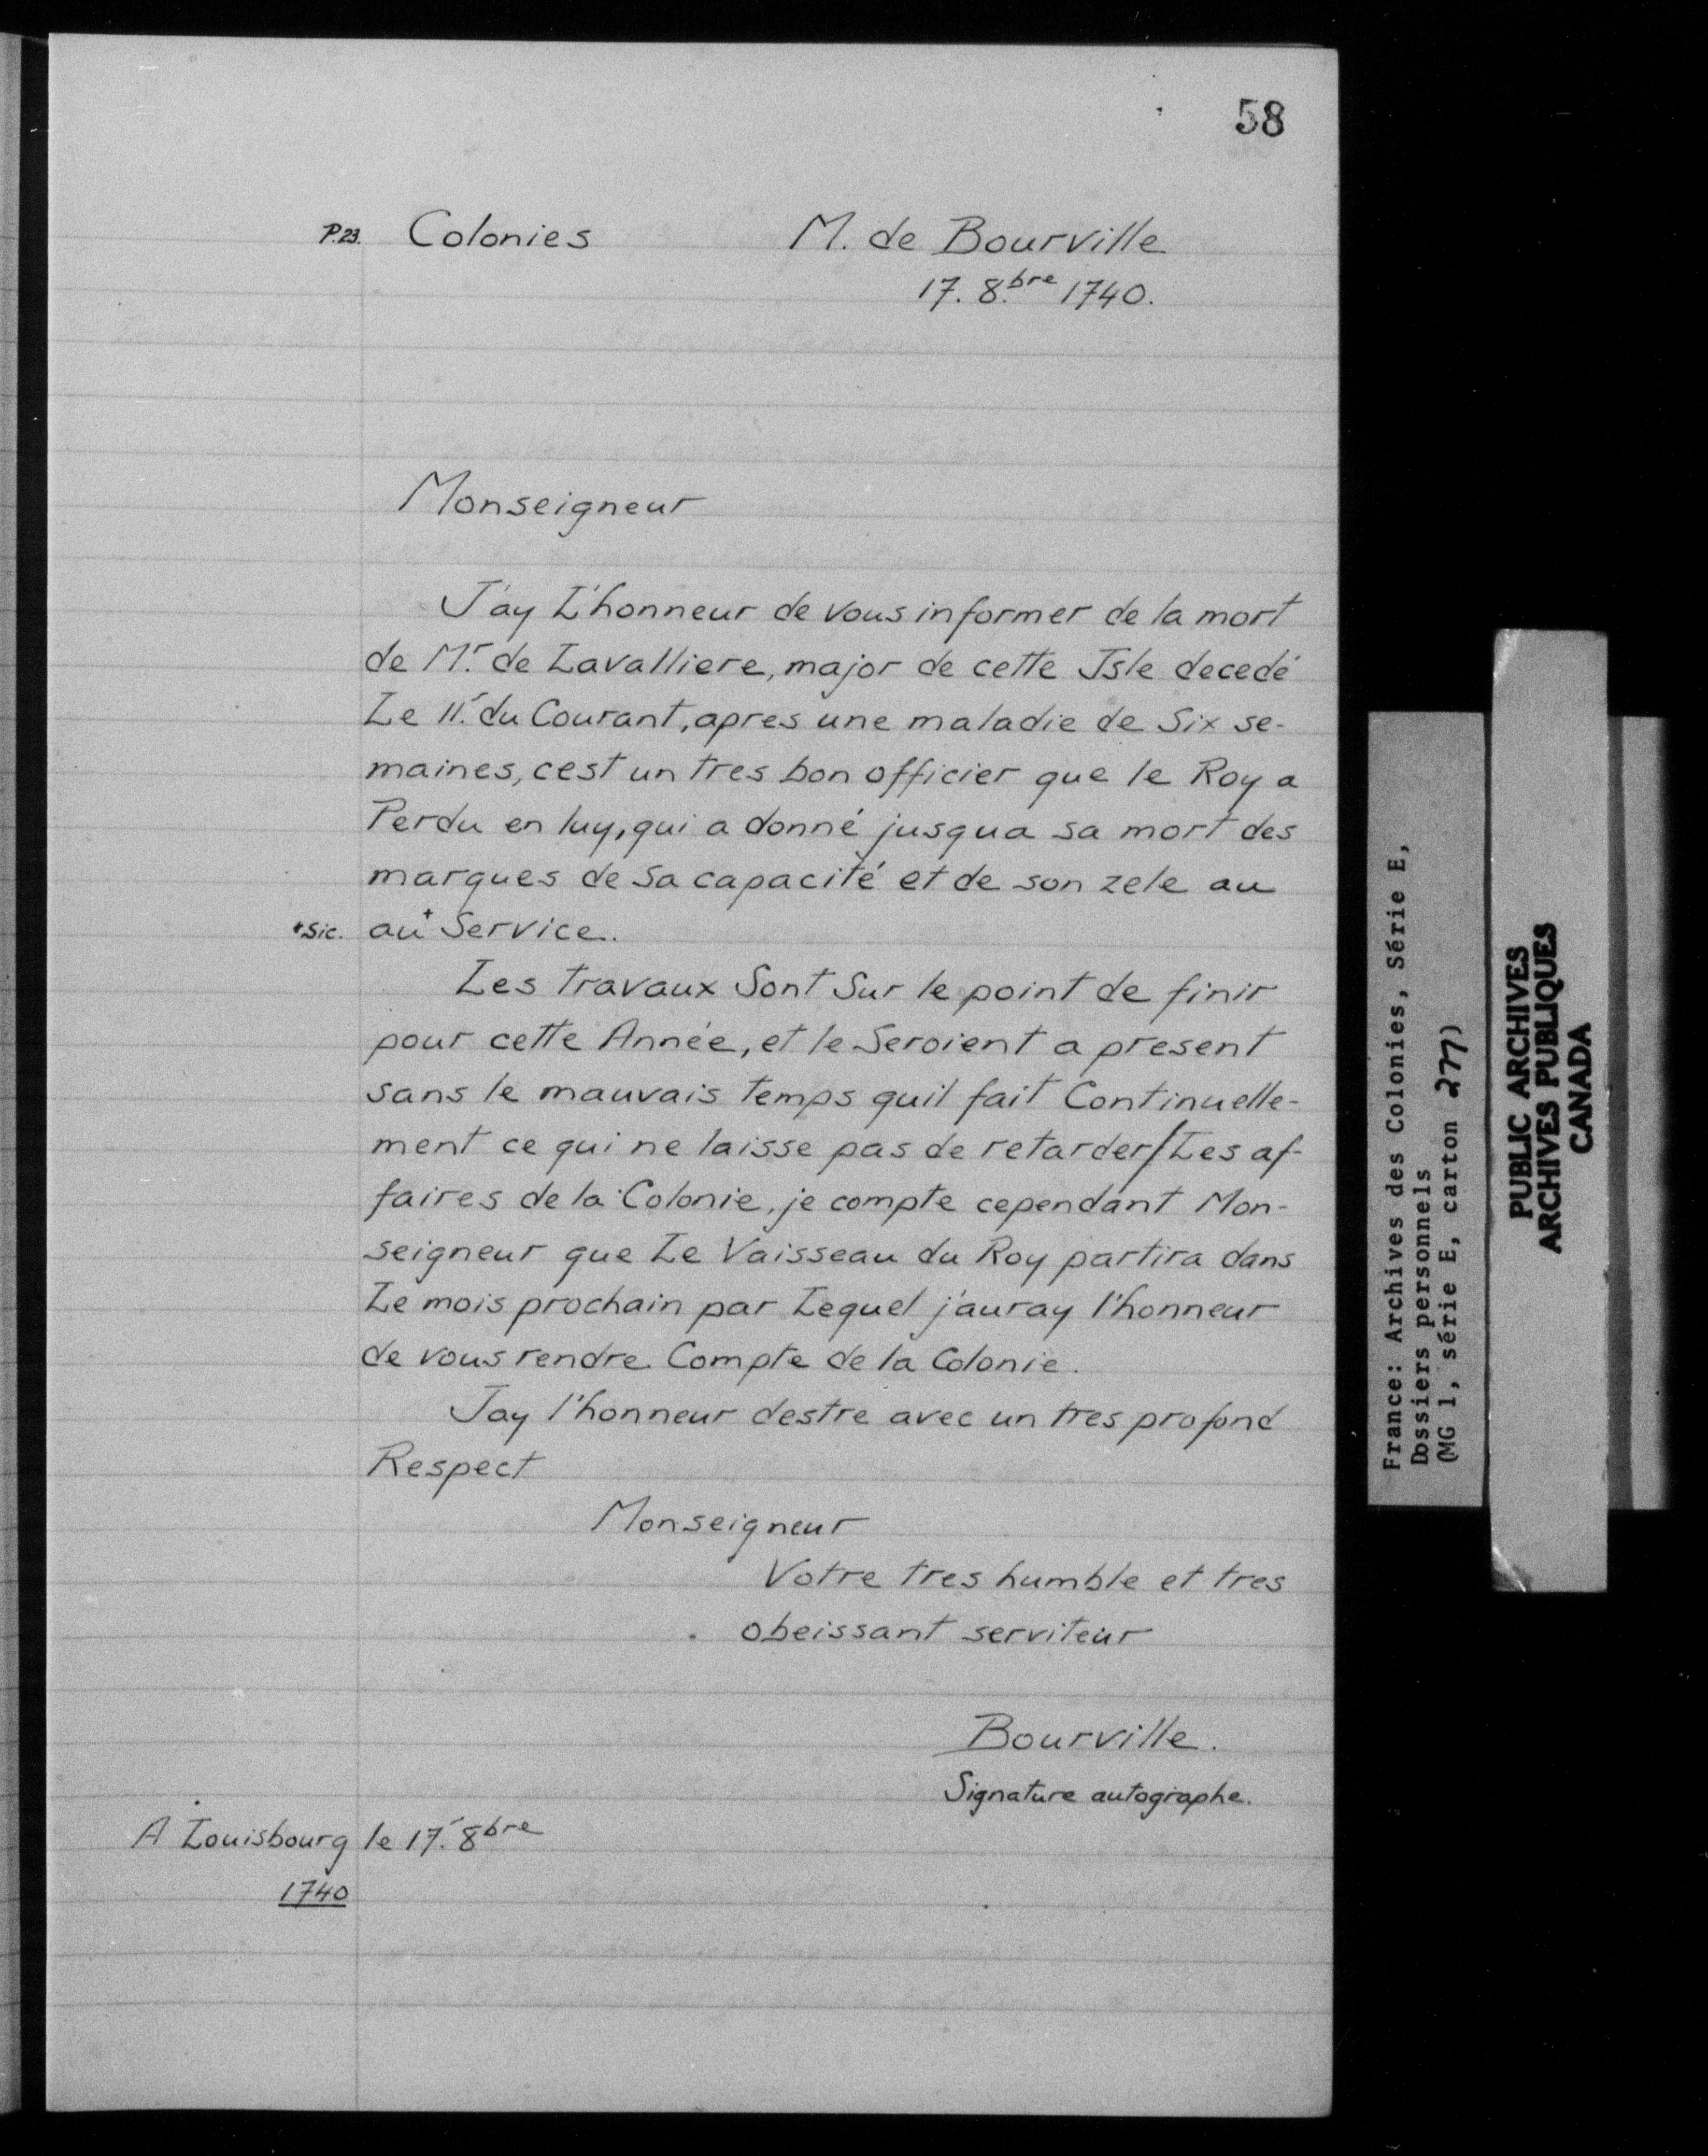 58
P.23. Colonies M. de Bourville
17. 8.bre 1740.
Monseigneur
J'ay L'honneur de vous informer de la mort
de Mr. de Lavalliere, major de cette Isle decedé
Le 11.e du Courant, apres une maladie de Six se-
maines, cest un tres bon officier que le Roy a
Perdu en luy, qui a donné jusqua sa mort des
marques de sa capacité et de son zele au
+Sic. au+ Service.
Les travaux Sont Sur le point de finir
pour cette Année, et le Seroient a present
sans le mauvais temps quil fait Continuelle-
ment ce qui ne laisse pas de retarder/Les af-
faires de la Colonie, je compte cependant Mon-
seigneur que Le Vaisseau du Roy partira dans
Le mois prochain par Lequel j'auray l'honneur
de vous rendre Compte de la Colonie.
Jay l'honneur destre avec un tres profond
Respect
Monseigneur
Votre tres humble et tres
obeissant serviteur
Bourville.
Signature autographe.
A Louisbourg le 17.e 8bre
1740
France: Archives des Colonies, Série E,
Dossiers personnels
(MG 1, série E, carton 277)
PUBLIC ARCHIVES
ARCHIVES PUBLIQUES
CANADA